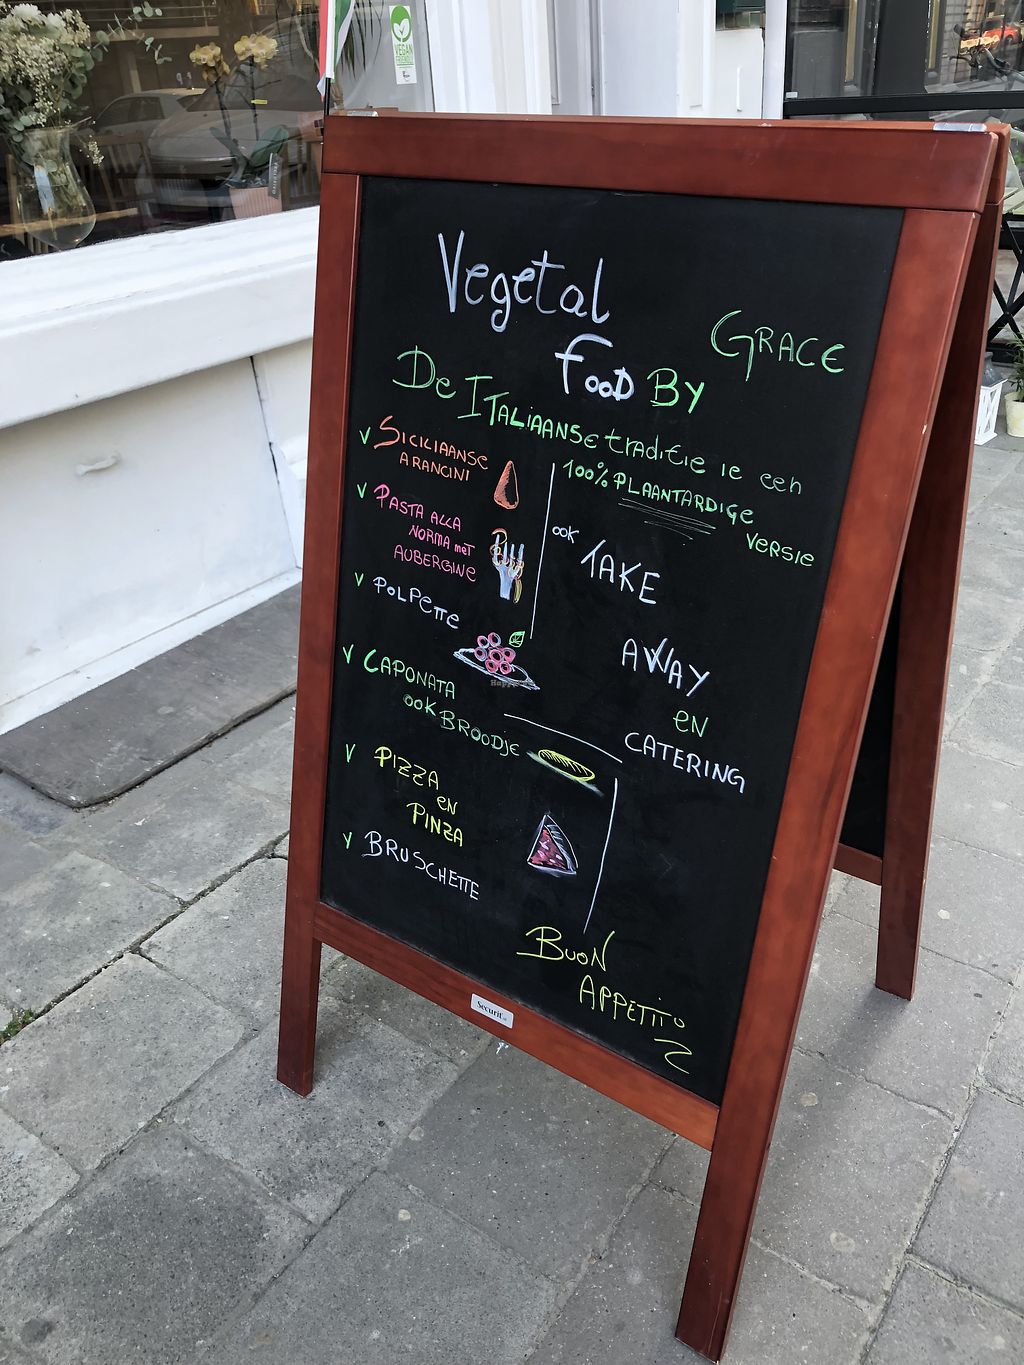 VEGAN
Vegetal
FOOD BY GRACE
De ITALIAANSE traditie ie een
100% PLAANTARDIGE
VERSIE
V SICILIAANSE
ARANCINI
V PASTA ALLA
NORMA met
AUBERGINE
V POLPETTE
V CAPONATA
OOK BROODJE
V PIZZA
EN
PINZA
V BRUSCHETTE
OOK TAKE
AWAY
EN
CATERING
BUON
APPETITO
Securit